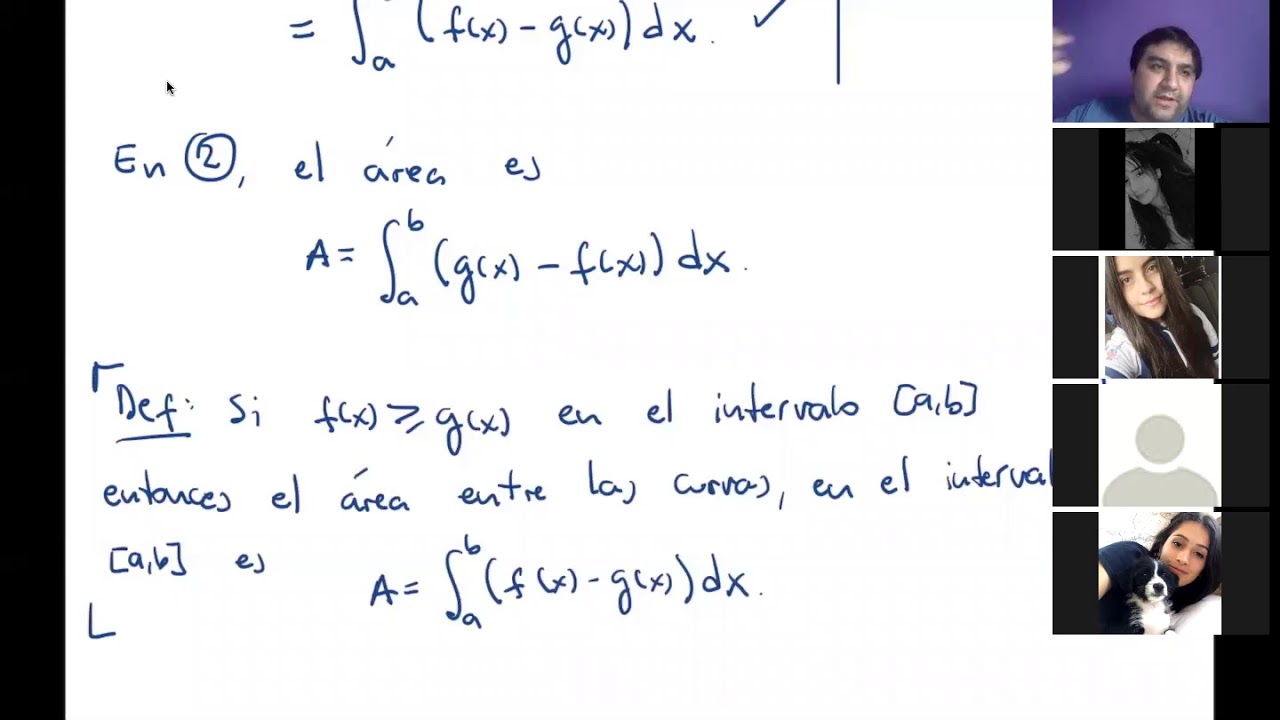 = ∫_a (f(x) - g(x)) dx. ✓
En ②, el área es
A = ∫_a^b (g(x) - f(x)) dx.
Def: Si f(x) ⩾ g(x) en el intervalo [a,b]
entonces el área entre las curvas, en el interval
[a,b] es
A = ∫_a^b (f(x) - g(x)) dx.